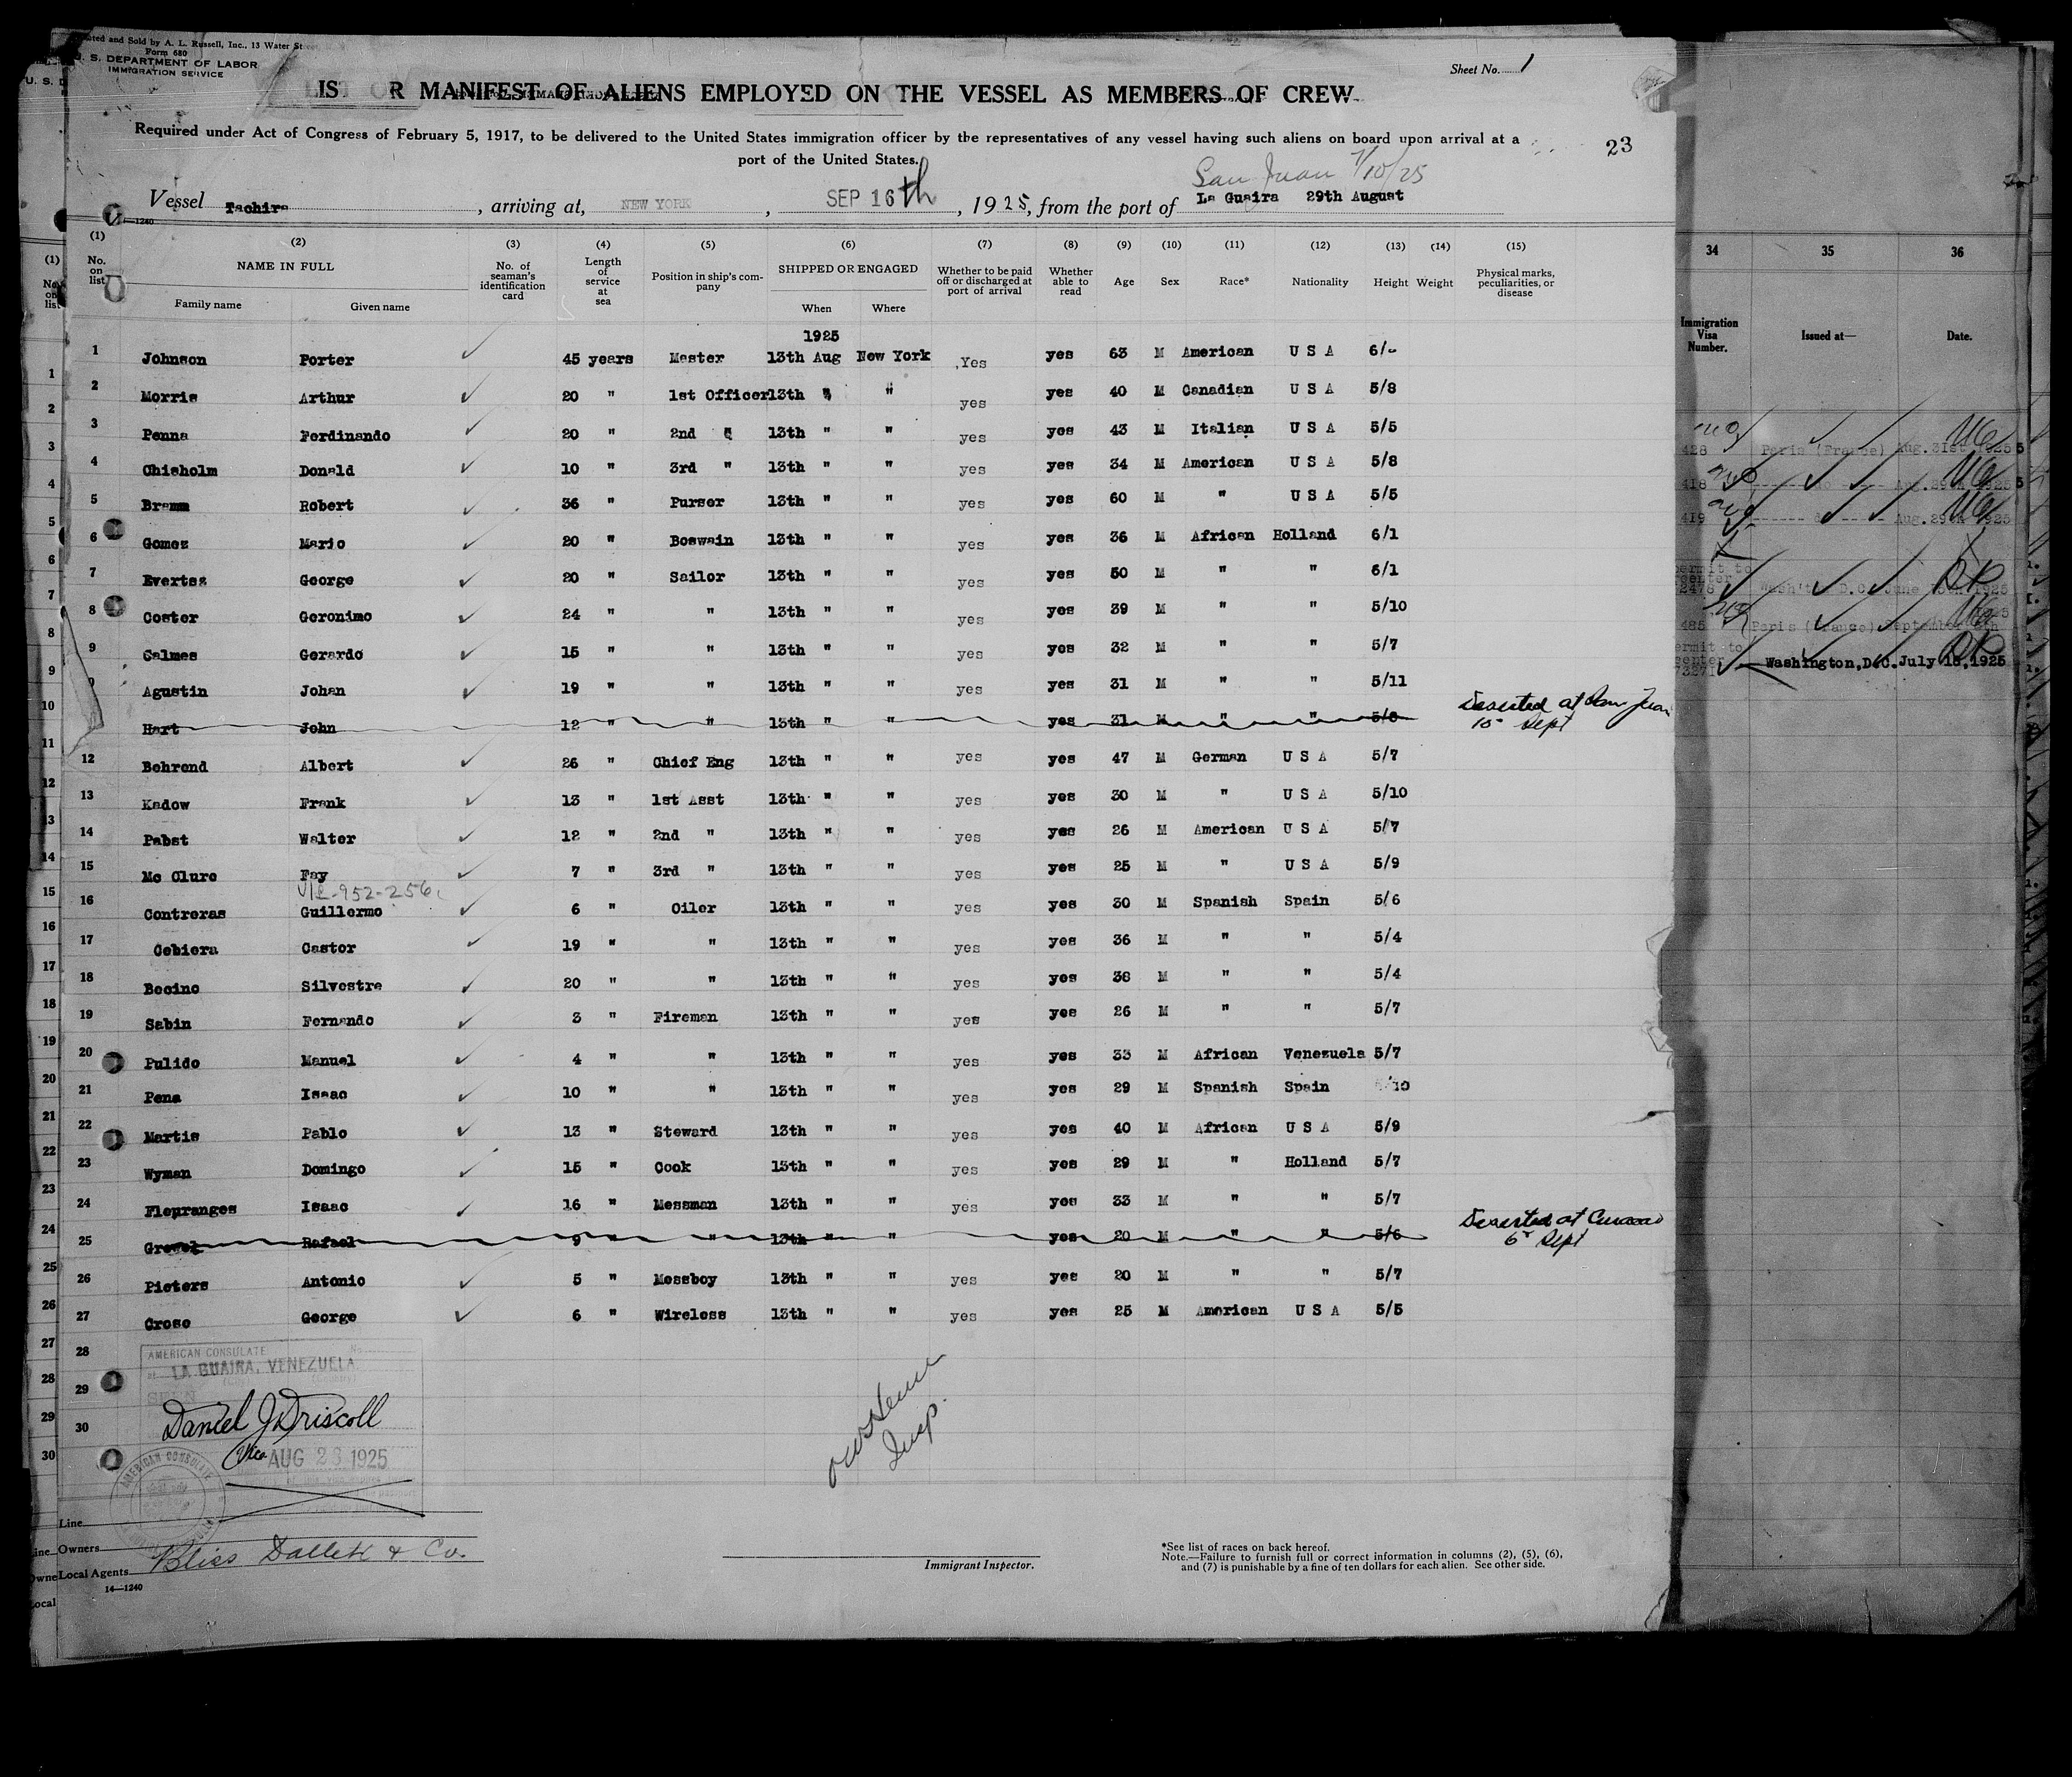 ted and Sold by A. L. Russell, Inc., 13 Water Street
Form 680
U. S. DEPARTMENT OF LABOR
IMMIGRATION SERVICE
Sheet No. 1
LIST OR MANIFEST OF ALIENS EMPLOYED ON THE VESSEL AS MEMBERS OF CREW
Required under Act of Congress of February 5, 1917, to be delivered to the United States immigration officer by the representatives of any vessel having such aliens on board upon arrival at a
port of the United States.
23
San Juan 9/10/25
Vessel Tachira, arriving at, NEW YORK, SEP 16th, 1925, from the port of La Guaira 29th August
14—1240
(1) (2) (3) (4) (5) (6) (7) (8) (9) (10) (11) (12) (13) (14) (15)
No. on list NAME IN FULL Family name Given name No. of seaman's identification card Length of service at sea Position in ship's company SHIPPED OR ENGAGED When Where Whether to be paid off or discharged at port of arrival Whether able to read Age Sex Race* Nationality Height Weight Physical marks, peculiarities, or disease
1925
1 Johnson Porter 45 years Master 13th Aug New York Yes yes 63 M American U S A 6/-
2 Morris Arthur 20 " 1st Officer 13th " " yes yes 40 M Canadian U S A 5/8
3 Penna Ferdinando 20 " 2nd " 13th " " yes yes 43 M Italian U S A 5/5
4 Chisholm Donald 10 " 3rd " 13th " " yes yes 34 M American U S A 5/8
5 Bramm Robert 36 " Purser 13th " " yes yes 60 M " U S A 5/5
6 Gomez Mario 20 " Boswain 13th " " yes yes 36 M African Holland 6/1
7 Evertsz George 20 " Sailor 13th " " yes yes 50 M " " 6/1
8 Coster Geronimo 24 " " 13th " " yes yes 39 M " " 5/10
9 Salmes Gerardo 15 " " 13th " " yes yes 32 M " " 5/7
Agustin Johan 19 " " 13th " " yes yes 31 M " " 5/11
Hart John 12 " " 13th " " yes 31 M " " 5/8 Deserted at San Juan
15 Sept
12 Behrend Albert 26 " Chief Eng 13th " " yes yes 47 M German U S A 5/7
13 Kadow Frank 13 " 1st Asst 13th " " yes yes 30 M " U S A 5/10
14 Pabst Walter 12 " 2nd " 13th " " yes yes 26 M American U S A 5/7
15 Mc Clure Fay 7 " 3rd " 13th " " yes yes 25 M " U S A 5/9
16 Contreras Guillermo 6 " Oiler 13th " " yes yes 30 M Spanish Spain 5/6
17 Cebiera Castor 19 " " 13th " " yes yes 36 M " " 5/4
18 Bocino Silvestre 20 " " 13th " " yes yes 38 M " " 5/4
19 Sabin Fernando 3 " Fireman 13th " " yes yes 26 M " " 5/7
20 Pulido Manuel 4 " " 13th " " yes yes 33 M African Venezuela 5/7
21 Pena Isaac 10 " " 13th " " yes yes 29 M Spanish Spain 5/10
22 Martis Pablo 13 " Steward 13th " " yes yes 40 M African U S A 5/9
23 Wyman Domingo 15 " Cook 13th " " yes yes 29 M " Holland 5/7
24 Fleuranges Isaac 16 " Messman 13th " " yes yes 33 M " " 5/7
25 Rafael 9 " " 13th " " yes 20 M " " 5/6 Deserted at Curacao
6 Sept
26 Pieters Antonio 5 " Messboy 13th " " yes yes 20 M " " 5/7
27 Crose George 6 " Wireless 13th " " yes yes 25 M American U S A 5/5
28
29
30
AMERICAN CONSULATE
LA GUAIRA, VENEZUELA
SEEN
Daniel J Driscoll
Vice AUG 28 1925
AMERICAN CONSULATE
Insp.
Line
Owners
Local Agents Bliss Dallett & Co.
14—1240
Immigrant Inspector.
*See list of races on back hereof.
Note.—Failure to furnish full or correct information in columns (2), (5), (6),
and (7) is punishable by a fine of ten dollars for each alien. See other side.
34 35 36
Immigration Visa Number. Issued at— Date.
428 Paris (France) Aug. 31st 1925
418 do Aug. 29th 1925
419 do Aug. 29th 1925
Wash't D.C. June
485 Paris (France) September
Washington, D.C. July 15, 1925